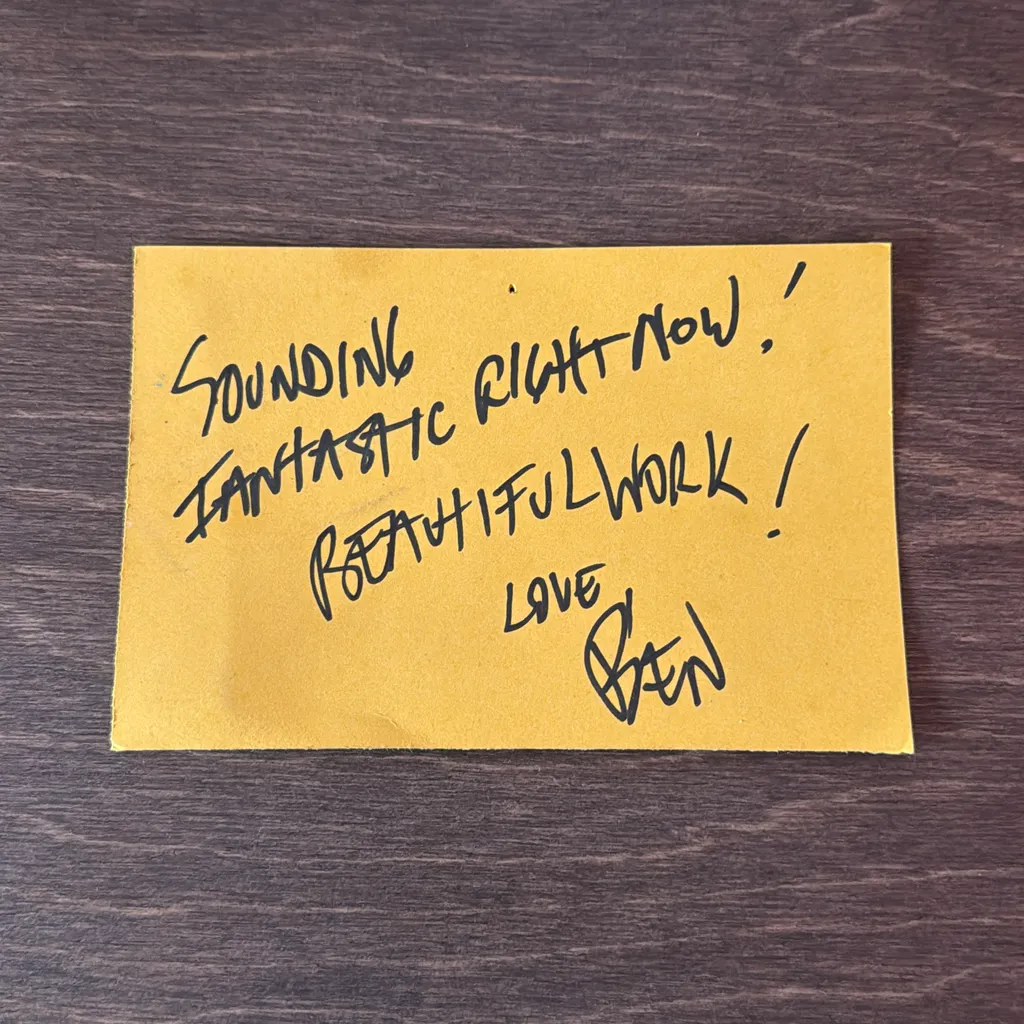 SOUNDING
FANTASTIC RIGHT NOW!
BEAUTIFUL WORK!
LOVE
BEN